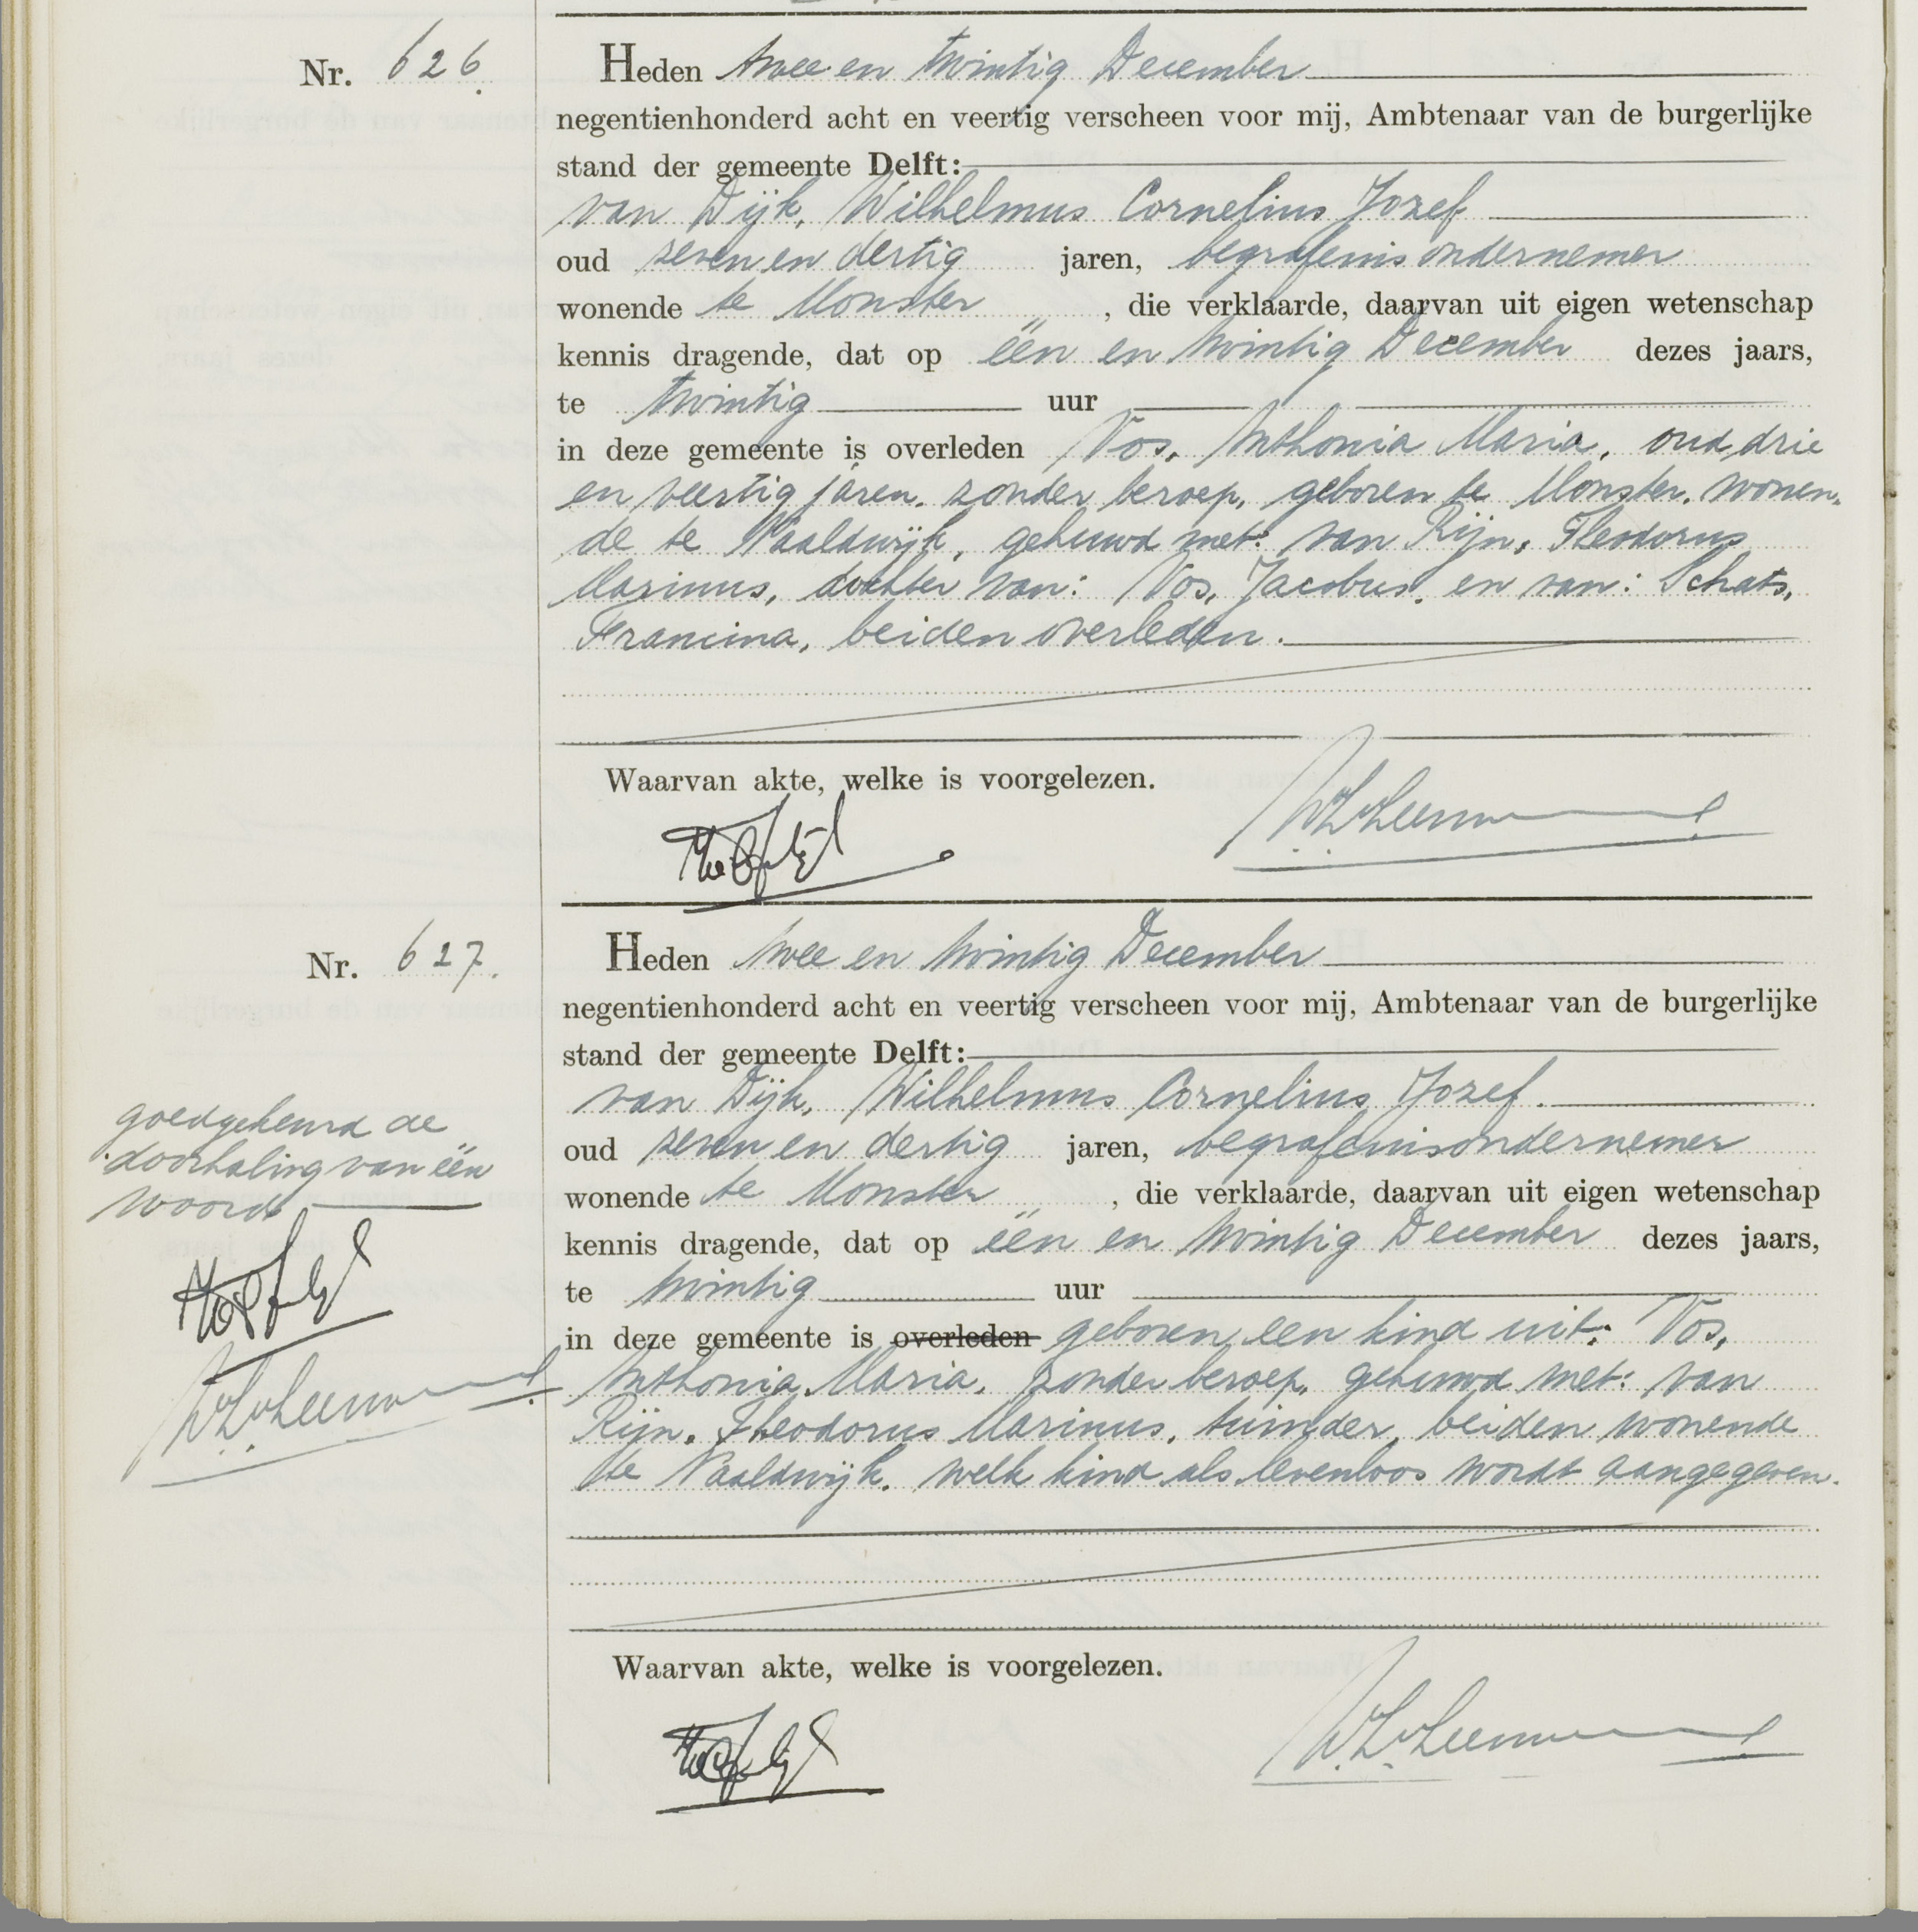 Nr. 626.
Heden twee en twintig December
negentienhonderd acht en veertig verscheen voor mij, Ambtenaar van de burgerlijke
stand der gemeente Delft:
van Dijk, Wilhelmus Cornelius Jozef
oud zeven en dertig jaren, begrafenisondernemer
wonende te Monster, die verklaarde, daarvan uit eigen wetenschap
kennis dragende, dat op één en twintig December dezes jaars,
te twintig uur
in deze gemeente is overleden Vos, Anthonia Maria, oud drie
en veertig jaren, zonder beroep, geboren te Monster, wonen-
de te Naaldwijk, gehuwd met: van Rijn, Theodorus
Marinus, dochter van: Vos, Jacobus, en van: Schats,
Francina, beiden overleden.
Waarvan akte, welke is voorgelezen.
Nr. 627.
Heden twee en twintig December
negentienhonderd acht en veertig verscheen voor mij, Ambtenaar van de burgerlijke
stand der gemeente Delft:
van Dijk, Wilhelmus Cornelius Jozef.
oud zeven en dertig jaren, begrafenisondernemer
wonende te Monster, die verklaarde, daarvan uit eigen wetenschap
kennis dragende, dat op één en twintig December dezes jaars,
te twintig uur
in deze gemeente is overleden geboren een kind uit: Vos,
Anthonia Maria, zonder beroep, gehuwd met: van
Rijn, Theodorus Marinus, tuinder, beiden wonende
te Naaldwijk, welk kind als levenloos wordt aangegeven.
Waarvan akte, welke is voorgelezen.
goedgekeurd de
doorhaling van één
woord